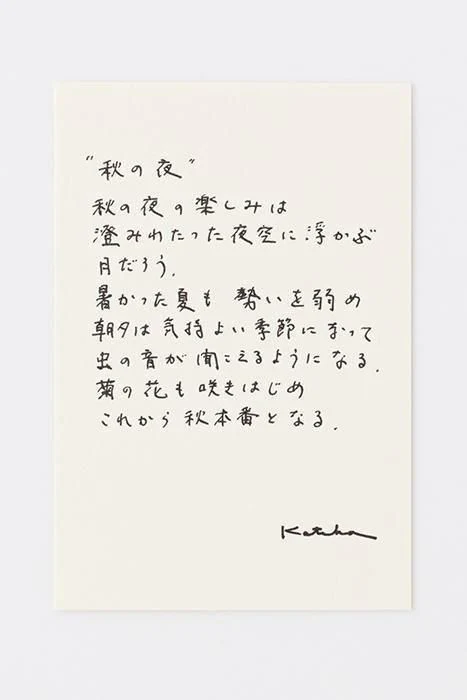 "秋の夜"
秋の夜の楽しみは
澄みわたった夜空に浮かぶ
月だろう.
暑かった夏も 勢いを弱め
朝夕は気持よい季節になって
虫の音が聞こえるようになる.
菊の花も咲きはじめ
これから秋本番となる.